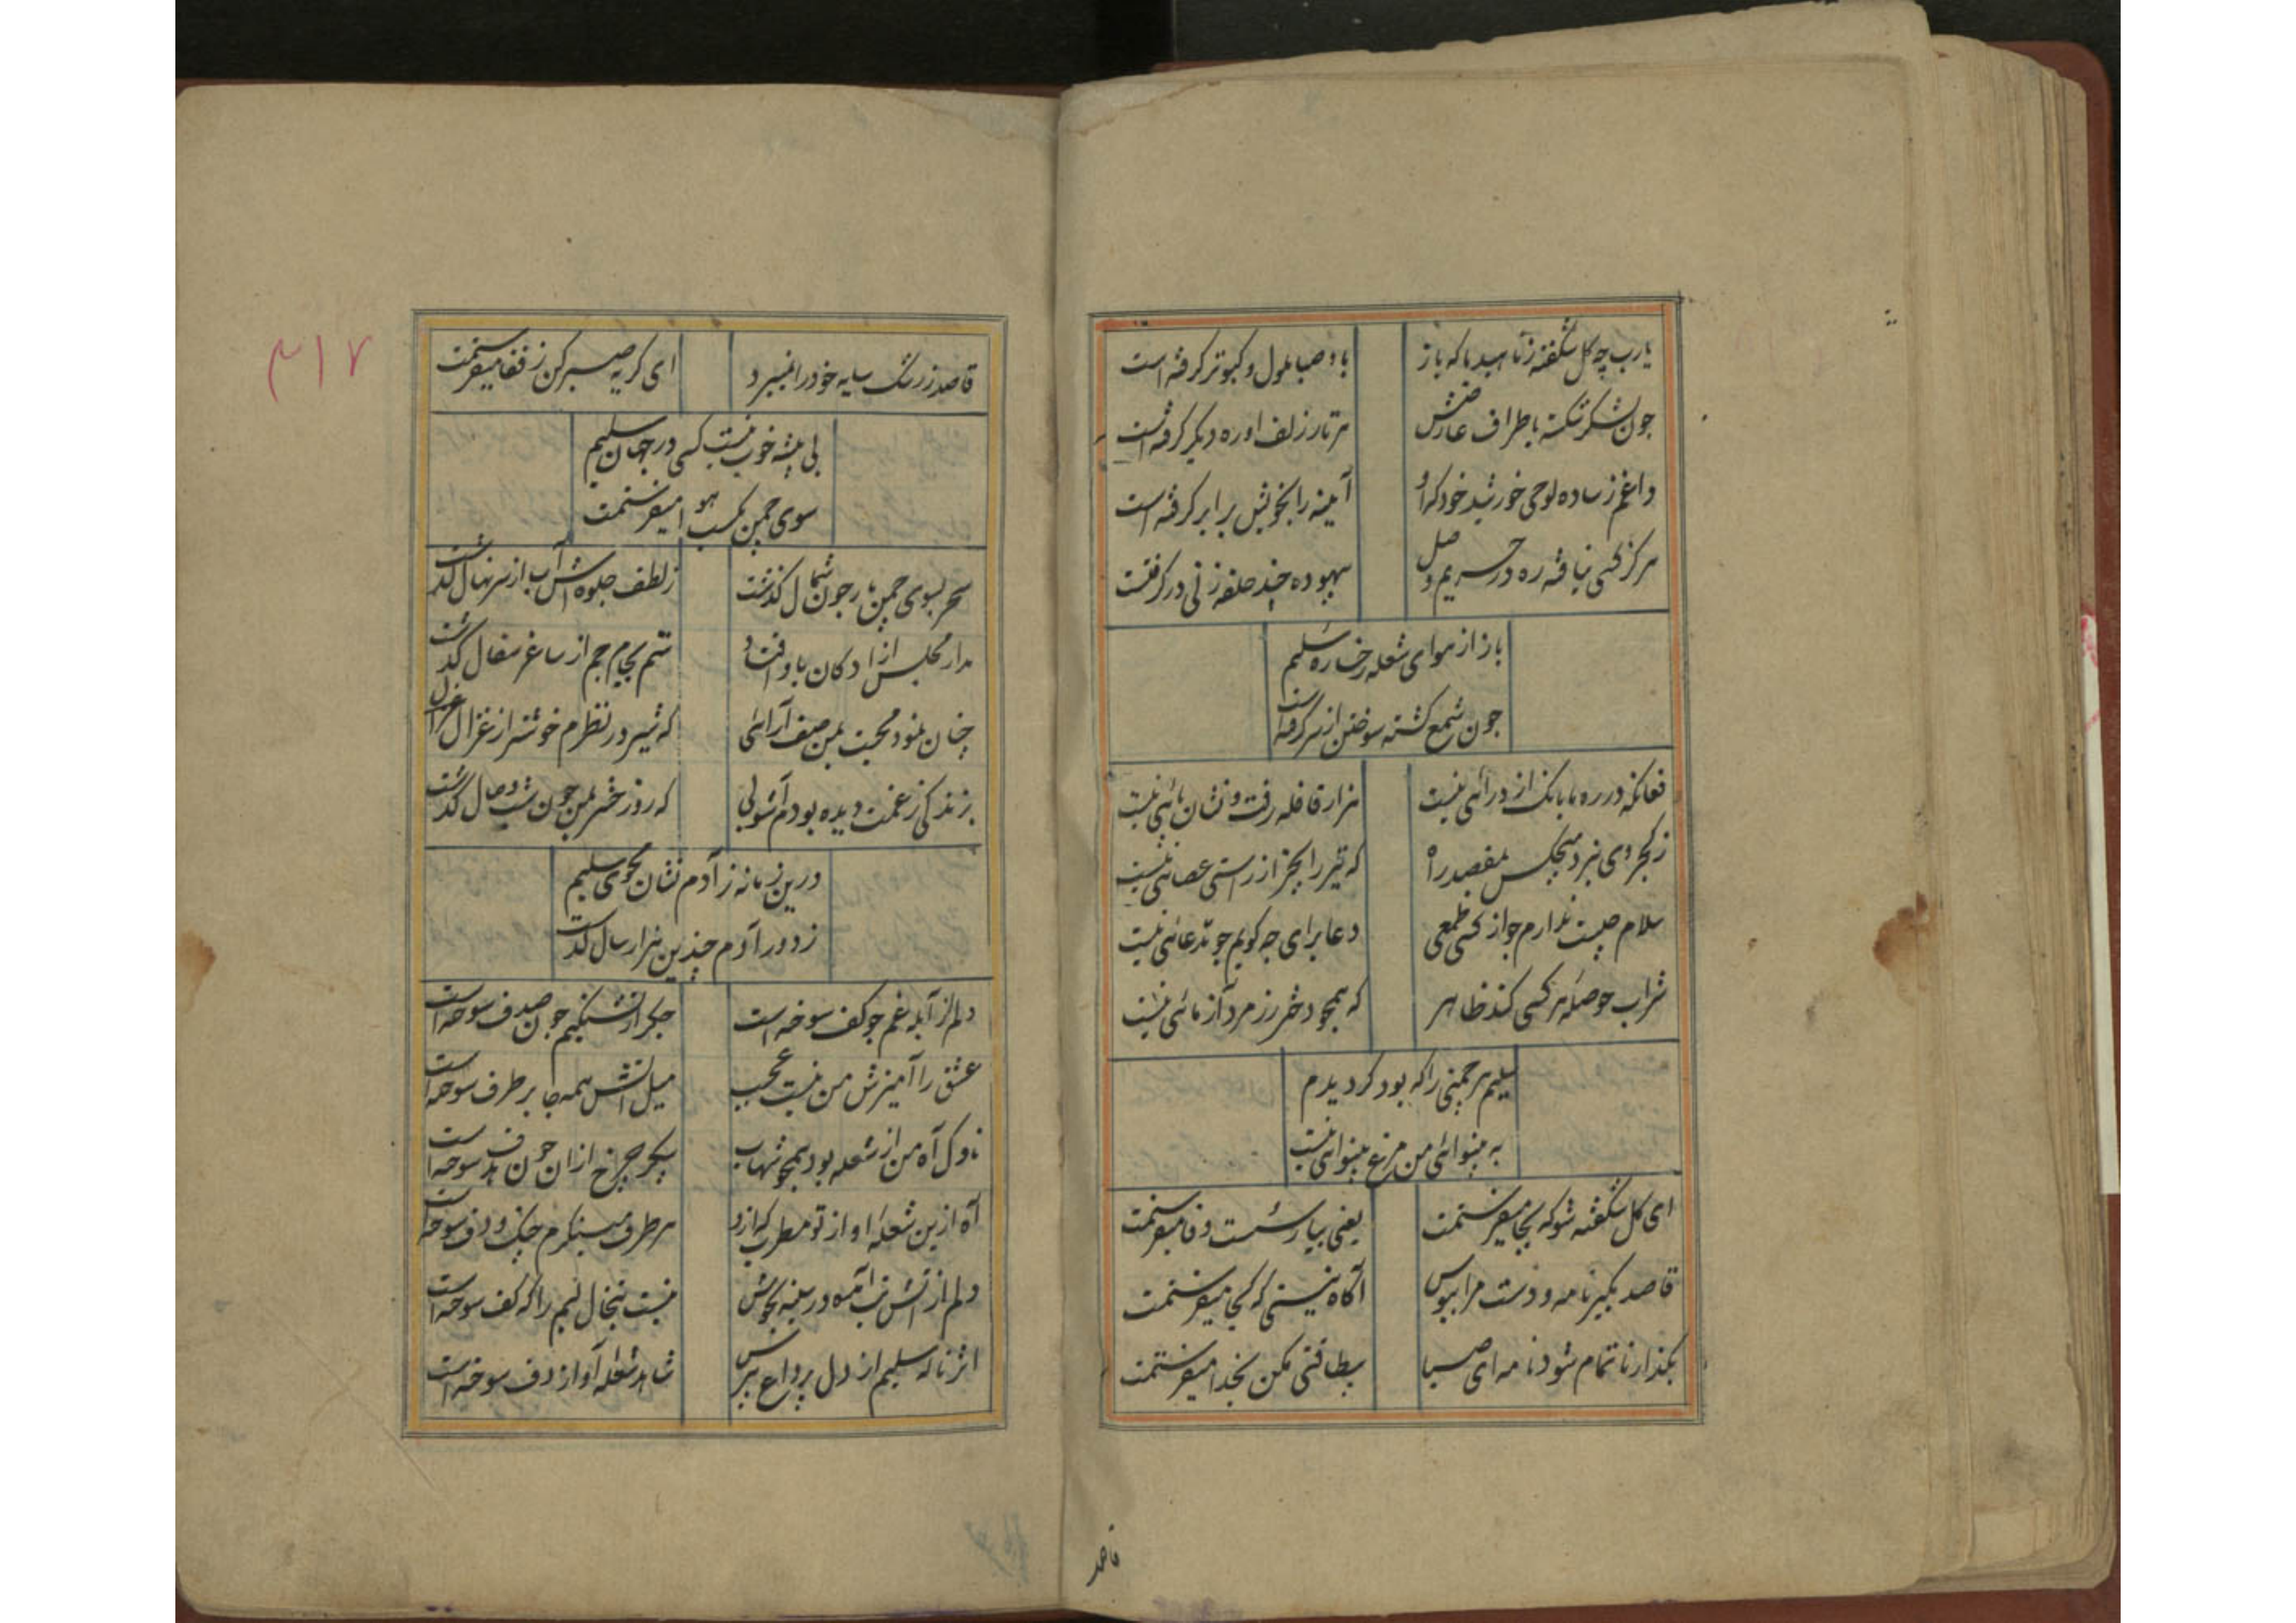 یارب چه کل شکفته زنا هید ما که باز
باد صبا ملول و کبوتر کرفته است
جون شکر شکسته باطراف عارضش
هر تار زلف او ره دیکر کرفته است
داغم ز ساده لوحی خورشید خود که او
آیینه را بخویش برابر کرفته است
هرکز کسی نیافته ره در حریم وصل
بیهوده چند حلقه زنی در کرفتست
باز از هوای شعله رخساره سلیم
جون شمع کشته سوختن از سر کرفته است
فغانکه در ره ما بانک از درائی نیست
هزار قافله رفت و نشان پائی نیست
ز کجروی نبرد هیچکس بمقصد راه
که تیر را بجز از راستی عصائی نیست
سلام چیست ندارم جو از کسی طمعی
دعا برای جه کویم جو مدعائی نیست
شراب حوصله هر کسی کند ظاهر
که همچو دختر رز مرد آزمائی نیست
سلیم هر چمنی را که بود کردیدم
به بینوائی من مرغ بینوائی نیست
ای کل شکفته شو که بجا میفرستمت
یعنی بیار سست وفا میفرستمت
قاصد بکیر نامه و دست مرا ببوس
آکاه نیستی که کجا میفرستمت
بکذار تا تمام شود نامه ای صبا
بیطاقتی مکن بخدا میفرستمت
قاصد
۳۱۷
قاصد ز رشک سایه خود را نمیبرد
ای کریه صبر کن ز قفا میفرستمت
بی پیشه خوب نیست کسی در جهان سلیم
سوی چمن بکسب هوا میفرستمت
سحر بسوی چمن یار جون شمال کذشت
ز لطف جلوه اش آب از سر نهال کذشت
مدار مجلس از ادکان باو افتاد
ستم بجام جم از ساغر سفال کذشت
چنان نمود محبت بمن صف آرائی
که شیر در نظرم خوشتر از غزال کذشت
بزندکی ز غمت دیده بودم آشوبی
که روز حشر بمن جون شب وصال کذشت
درین زمانه ز آدم نشان مجوی سلیم
ز دور آدم چندین هزار سال کذشت
دلم از آبله غم جو کف سوخته است
جکر از تشنکیم جون صدف سوخته است
عشق را آمیزش من نیست عجب
میل آتش همه جا بر طرف سوخته است
ناوک آه من از شعله بود همچو شهاب
پیکر چرخ ازان جون هدف سوخته است
آه ازین شعله آواز تو مطرب که ازو
هر طرف مینکرم چنک و دف سوخته است
دلم از آتش تب آمده در سینه بجوش
نیست تبخال لبم را که کف سوخته است
اثر ناله سلیم از دل پرداغ بپرس
شاهد شعله آواز دف سوخته است